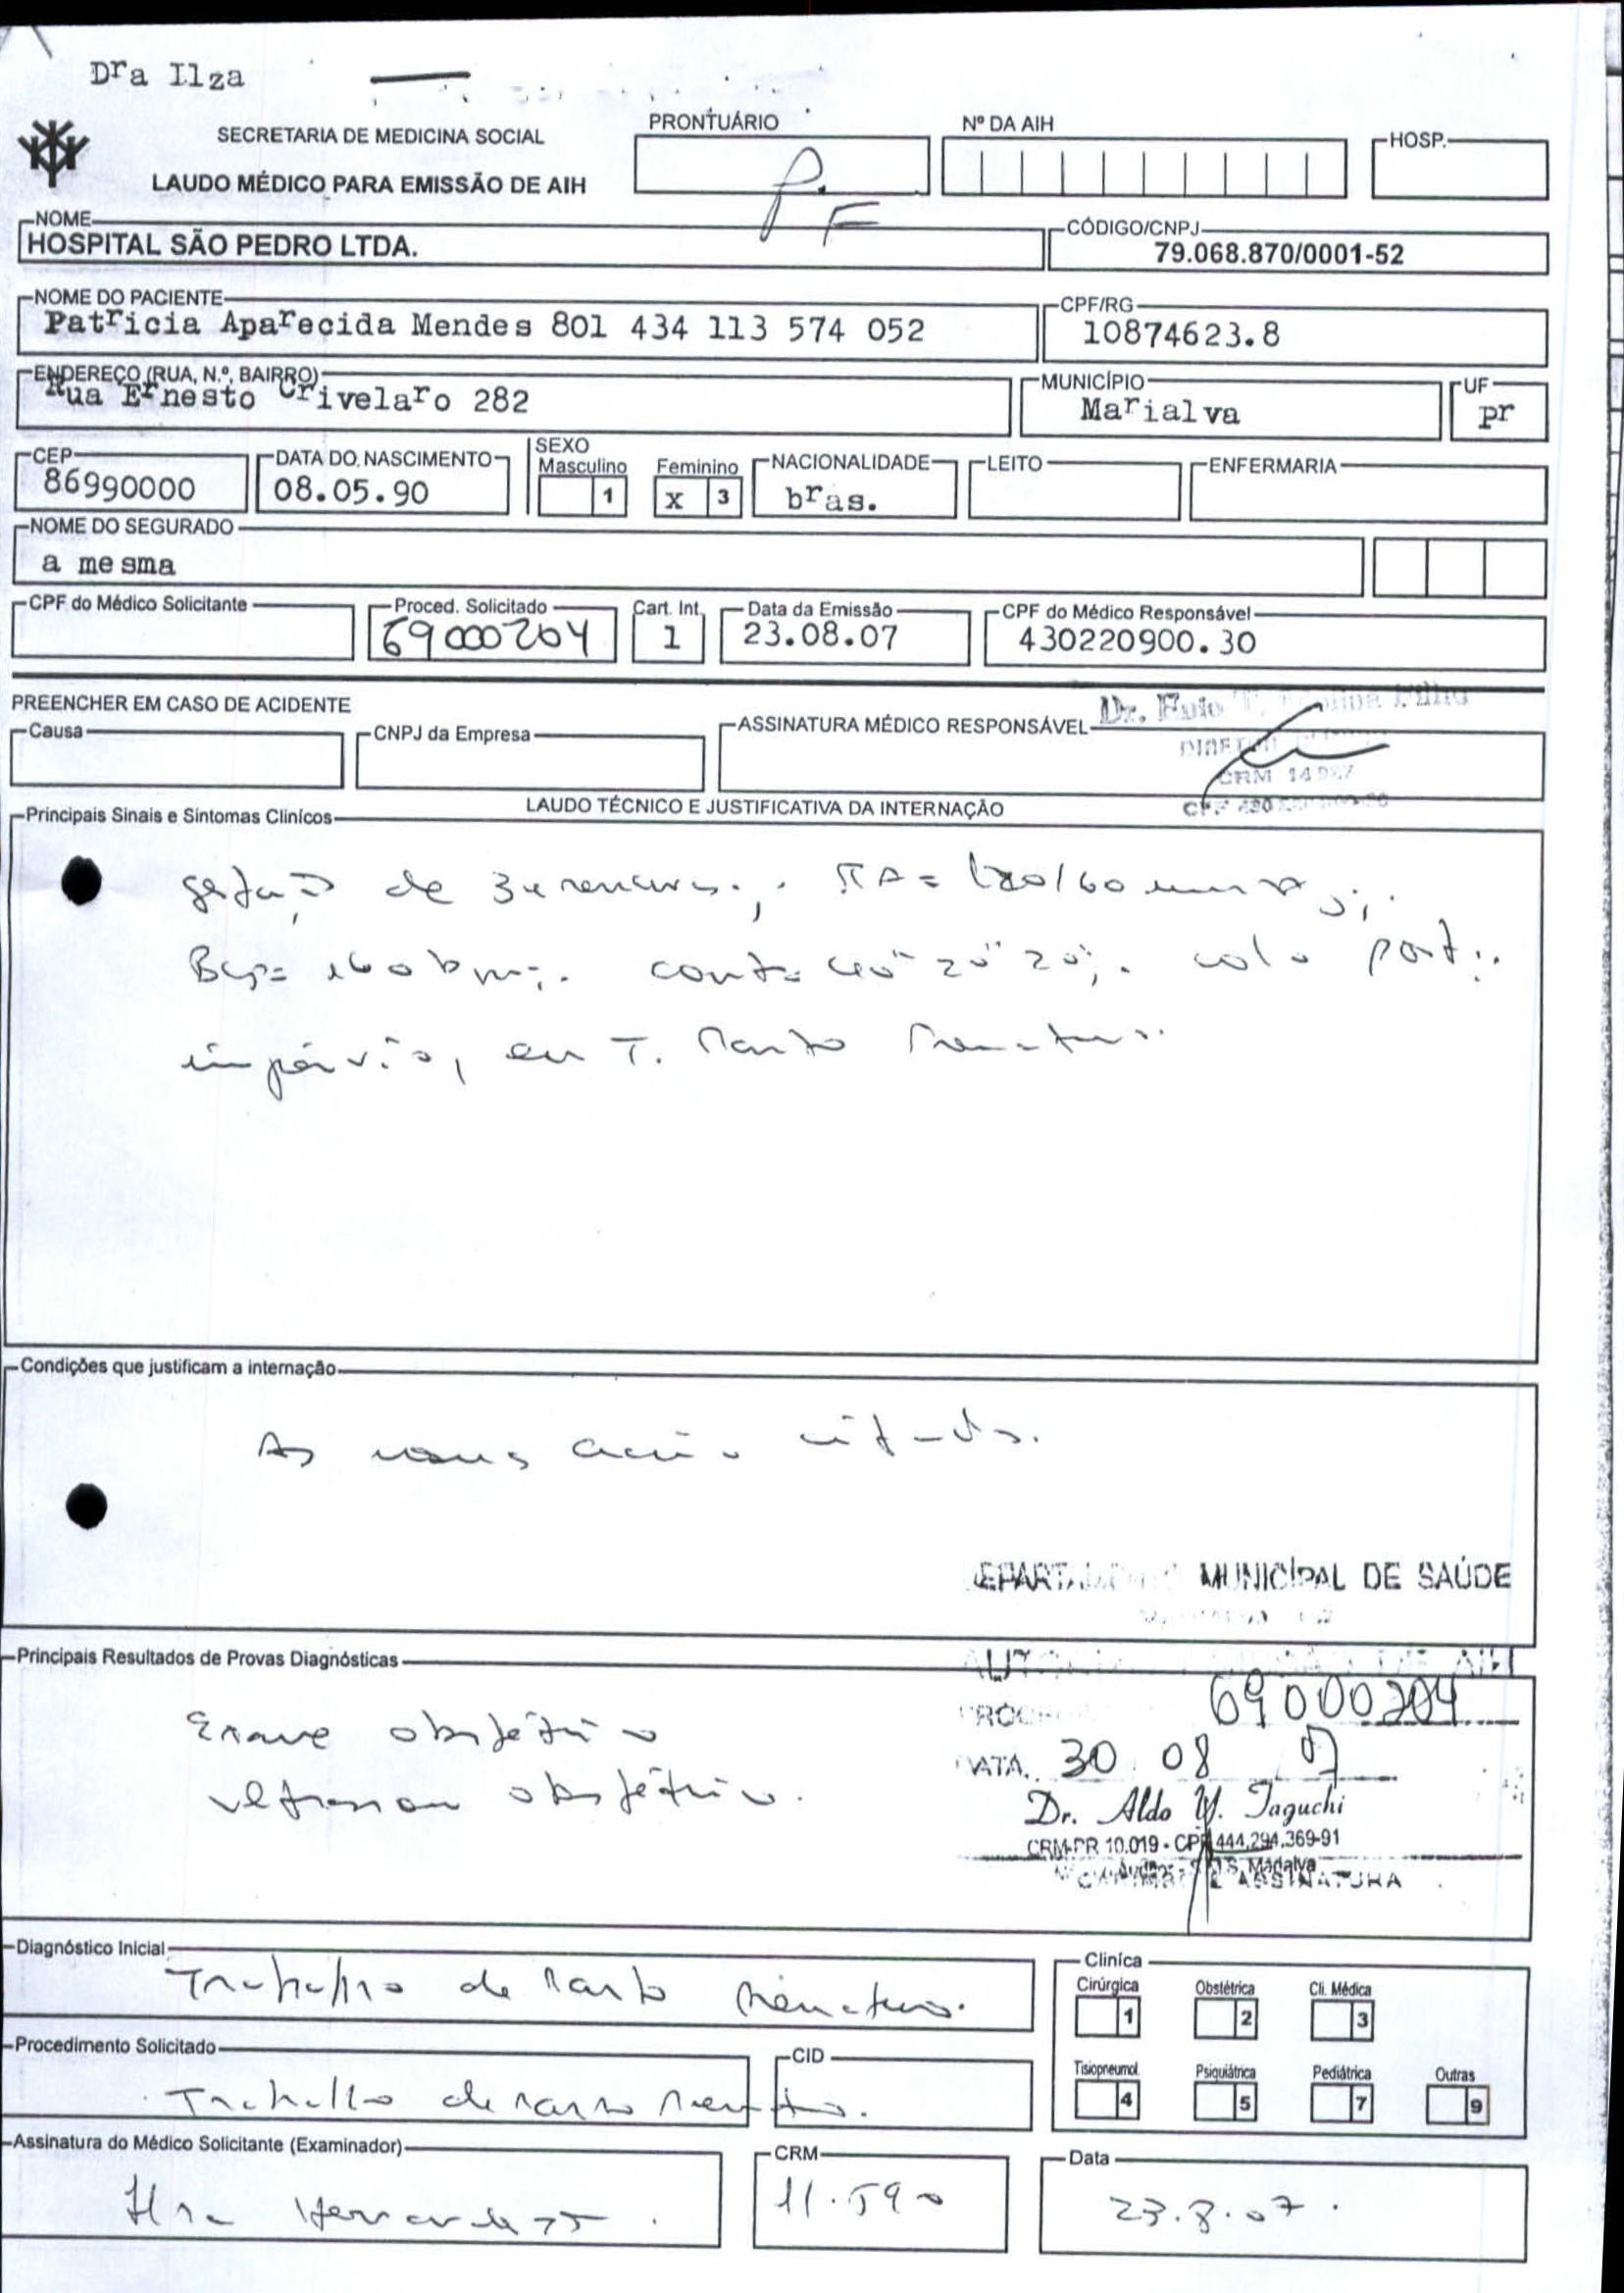 Dra Ilza
SECRETARIA DE MEDICINA SOCIAL
LAUDO MÉDICO PARA EMISSÃO DE AIH
PRONTUÁRIO
P.
F
Nº DA AIH
HOSP.
NOME
HOSPITAL SÃO PEDRO LTDA.
CÓDIGO/CNPJ
79.068.870/0001-52
NOME DO PACIENTE
Patricia Aparecida Mendes 801 434 113 574 052
CPF/RG
10874623.8
ENDEREÇO (RUA, N.º, BAIRRO)
Rua Ernesto Crivelaro 282
MUNICÍPIO
Marialva
UF
pr
CEP
86990000
DATA DO NASCIMENTO
08.05.90
SEXO
Masculino 1
Feminino x 3
NACIONALIDADE
bras.
LEITO
ENFERMARIA
NOME DO SEGURADO
a mesma
CPF do Médico Solicitante
Proced. Solicitado
69000204
Cart. Int.
1
Data da Emissão
23.08.07
CPF do Médico Responsável
430220900.30
PREENCHER EM CASO DE ACIDENTE
Causa
CNPJ da Empresa
ASSINATURA MÉDICO RESPONSÁVEL
Dr. Filho
CRM
LAUDO TÉCNICO E JUSTIFICATIVA DA INTERNAÇÃO
Principais Sinais e Sintomas Clínicos
de
colo
impérvio, em T. Parto Prematuro.
Condições que justificam a internação
As citado.
MUNICÍPAL DE SAÚDE
Principais Resultados de Provas Diagnósticas
Exame obstétrico
obstétrico.
DE AIH
69000204
DATA 30 08 07
Dr. Aldo Y. Taguchi
CRM-PR 10.019 - CPF 444.294.369-91
Marialva
ASSINATURA
Diagnóstico Inicial
Trabalho de Parto Prematuro.
Procedimento Solicitado
Trabalho de Parto Prematuro.
CID
Cliníca
Cirúrgica 1
Obstétrica 2
Cli. Médica 3
Tisiopneumol. 4
Psiquiátrica 5
Pediátrica 7
Outras 9
Assinatura do Médico Solicitante (Examinador)
CRM
11.590
Data
23.8.07.